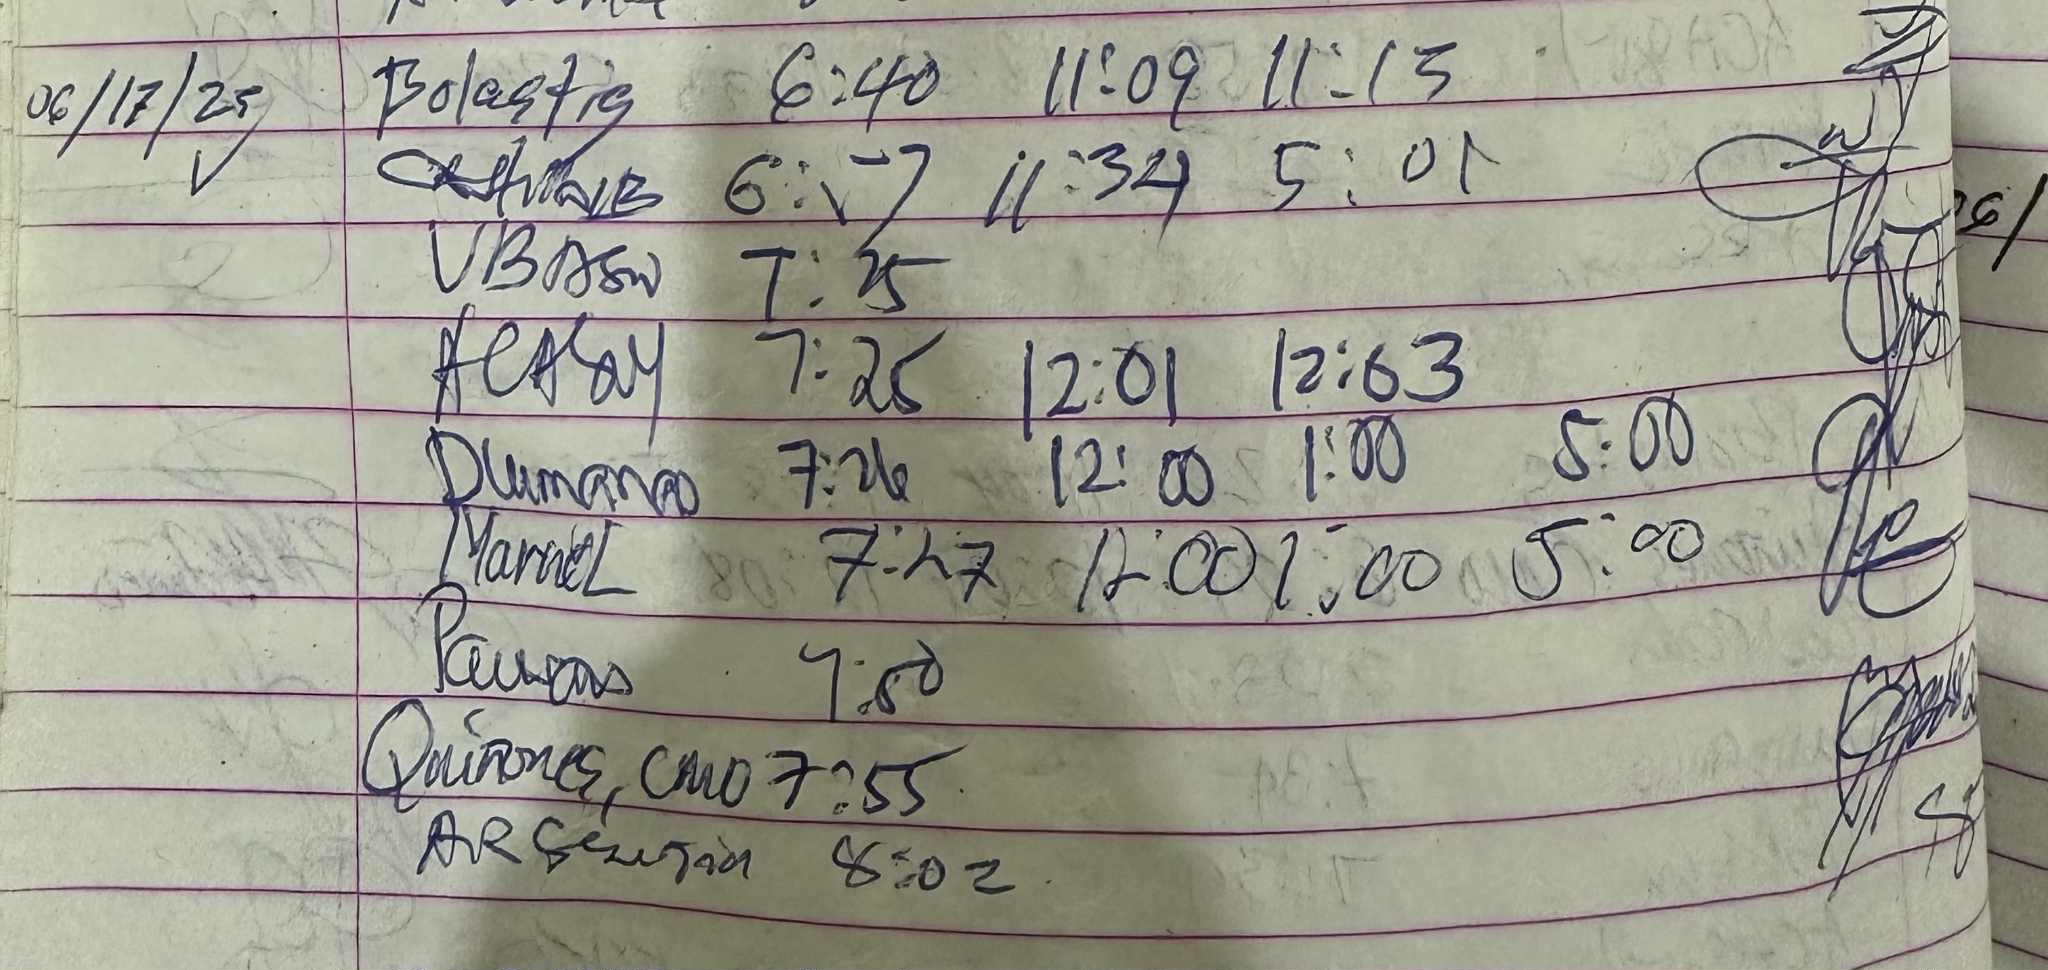 06/17/25 Bolastig 6:40 11:09 11:13
6:57 11:34 5:01
UBASW 7:25
ACASAY 7:25 12:01 12:03
Dlumanao 7:26 12:00 1:00 5:00
Marvel 7:27 12:00 1:00 5:00
7:50
Quiñones, CMO 7:55
ARGENTINA 8:02
06/